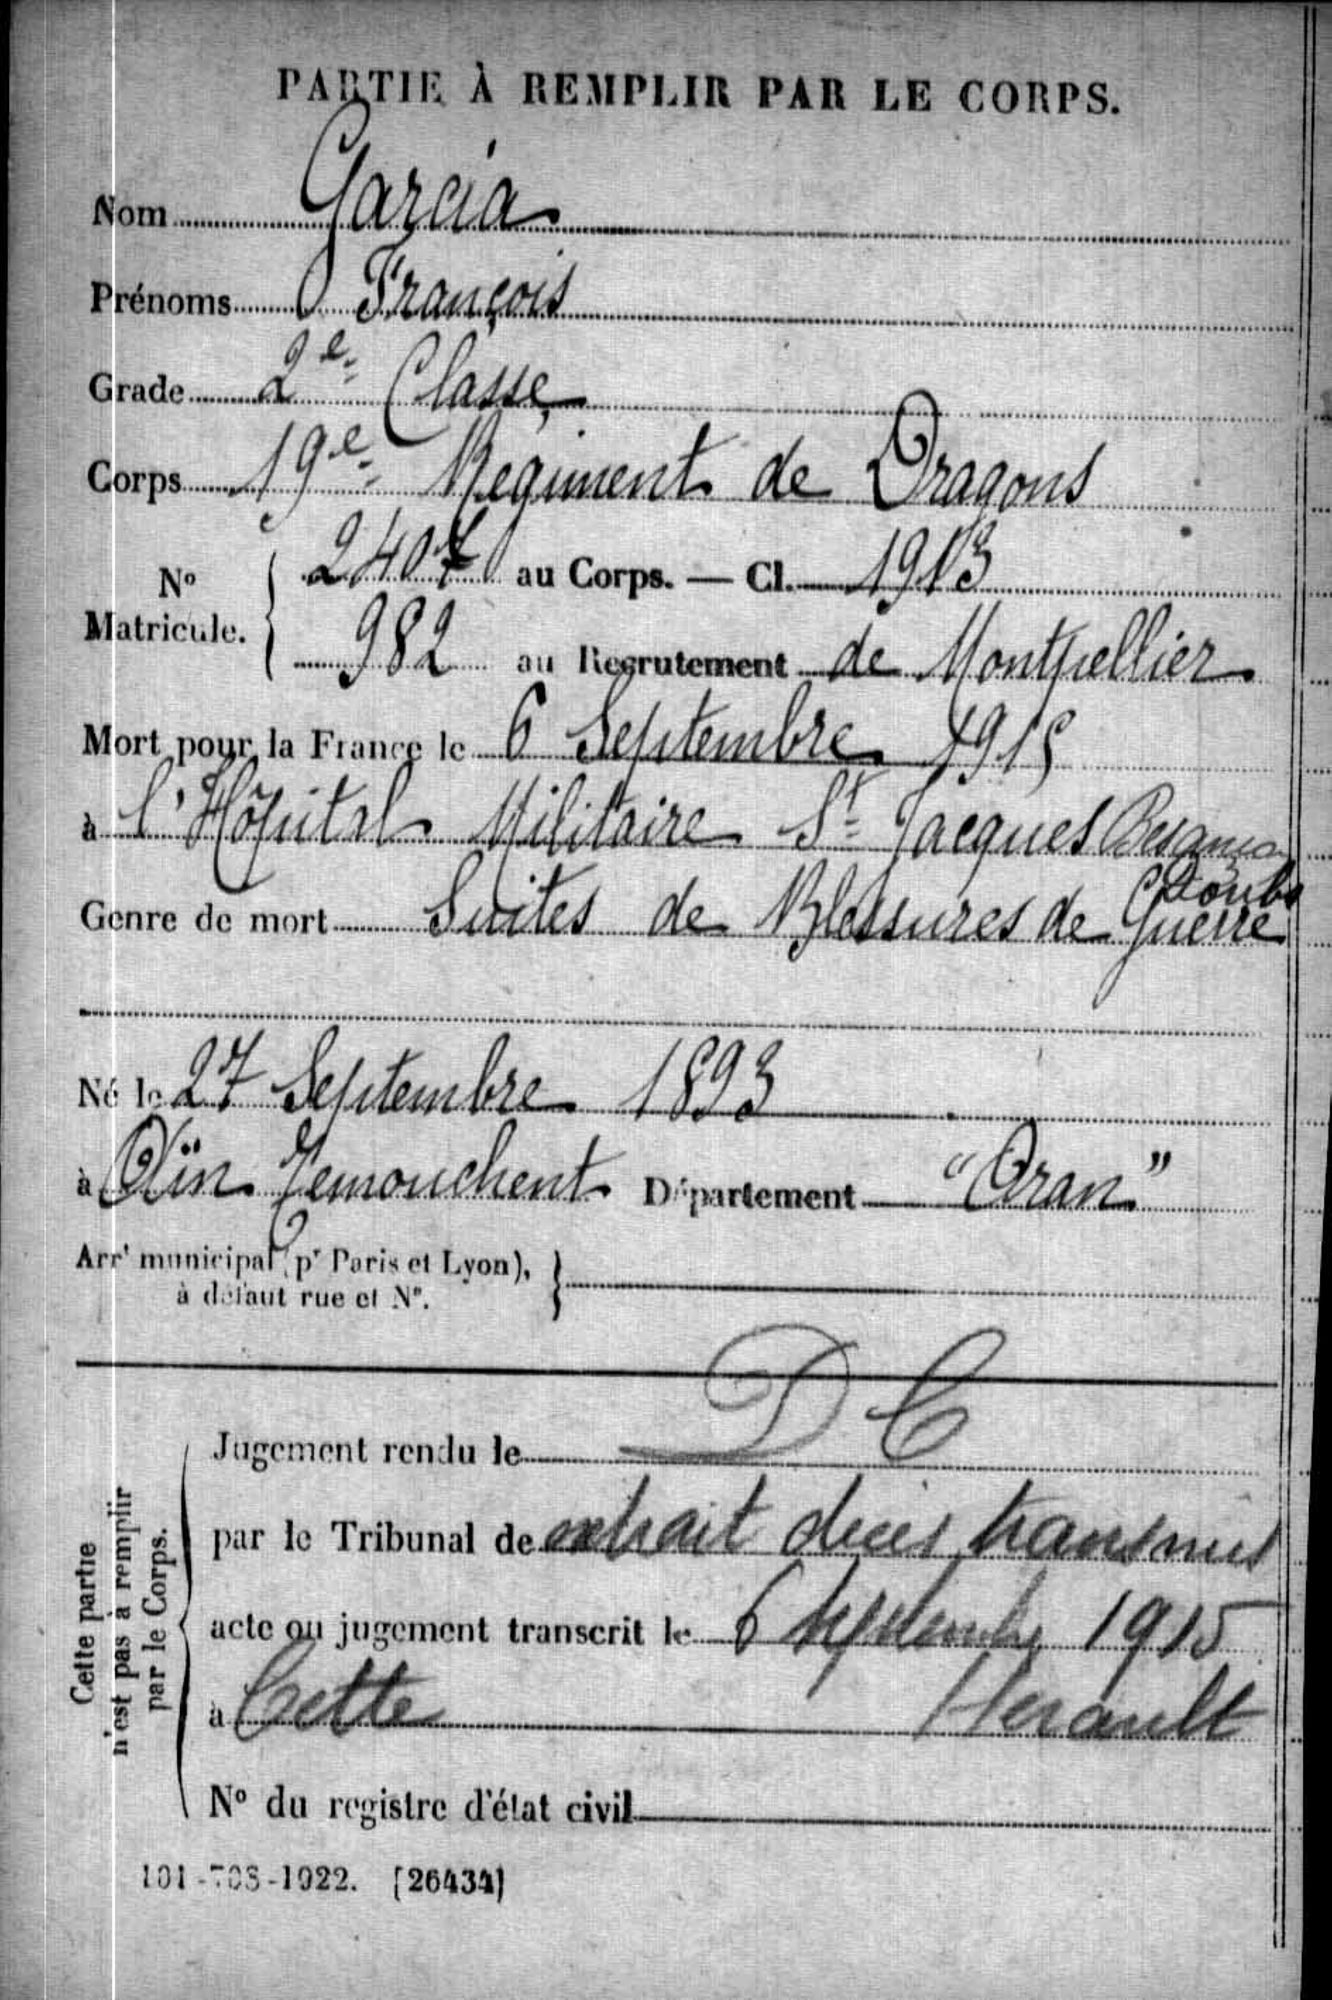 PARTIE À REMPLIR PAR LE CORPS.
Nom Garcia
Prénoms François
Grade 2e Classe
Corps 19e Regiment de Dragons
N° Matricule. { 2407 au Corps. — Cl. 1913
982 au Recrutement de Montpellier
Mort pour la France le 6 Septembre 1915
à l'Hôpital Militaire St Jacques Besançon
Doubs
Genre de mort Suites de Blessures de Guerre
Né le 27 Septembre 1893
à Aïn Temouchent Département "Oran"
Arrt municipal (pr Paris et Lyon),
à défaut rue et N°. }
DC
Jugement rendu le
par le Tribunal de extrait décès transmis
acte ou jugement transcrit le 6 Septembre 1915
à Cette Herault
N° du registre d'état civil
Cette partie
n'est pas à remplir
par le Corps.
101-708-1922. [26434]